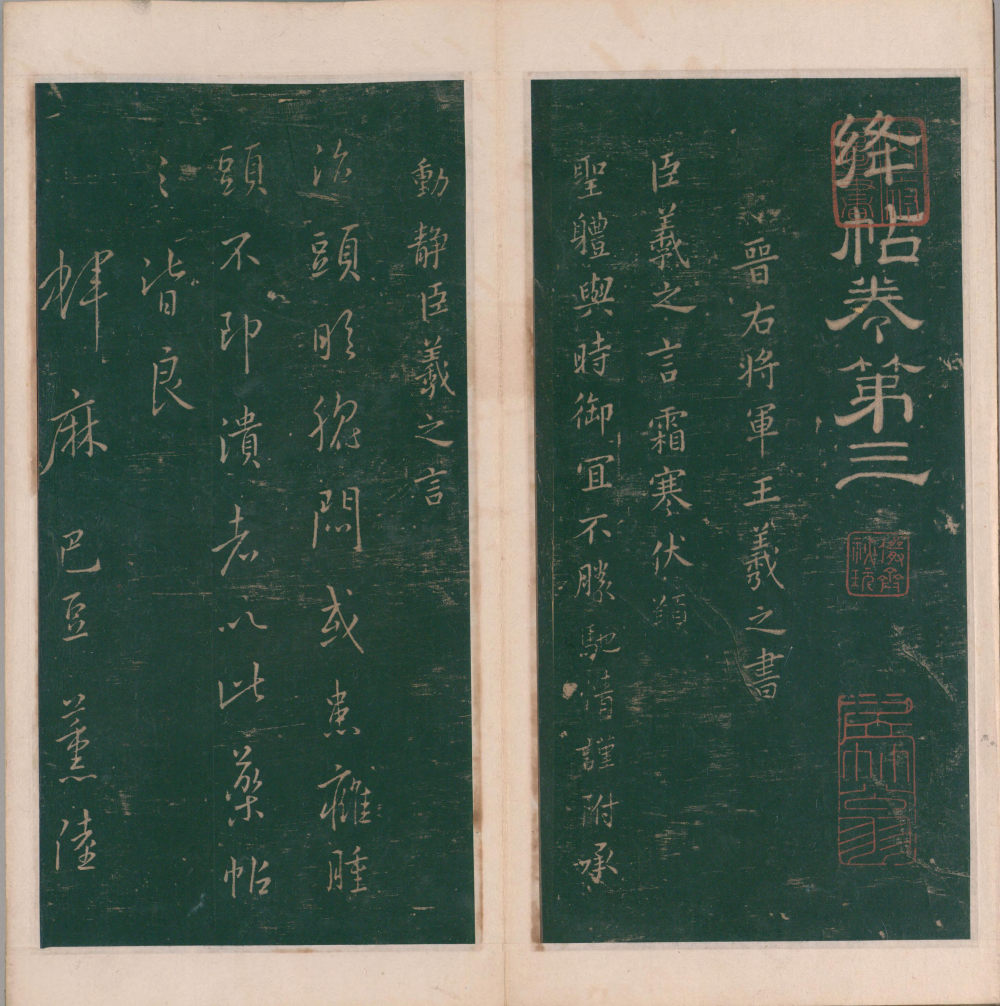 絳帖卷第三
晉右將軍王羲之書
臣羲之言霜寒伏願
聖軆與時御宜不勝馳情謹附承
動静臣羲之言
治頭眩腦悶或患癰腫
頭不即潰者以此藥帖
之皆良
蜱麻 巴豆 薰陸